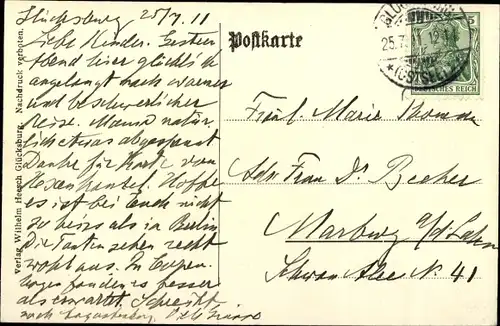 Glücksburg 25/7. 11
Liebe Kinder. Gestern
Abend hier glücklich
angelangt nach warmer
und beschwerlicher
Reise. Mama natür-
lich etwas abgespannt
Danke für Karte von
Hexentanzpl. Hoffe
es ist bei Euch nicht
so heiss als in Berlin
Die Tanten sehen recht
wohl aus. In Copen-
hagen fanden es besser
als erwartet. Schreibt
nach
Verlag Wilhelm Heesch Glücksburg. Nachdruck verboten.
Postkarte
25.7.11
*(OSTSEE)
5
DEUTSCHES REICH
Fräul. Marie
Adr. Frau Dr. Becker
Marburg a/d Lahn
Schwan Allee No 41